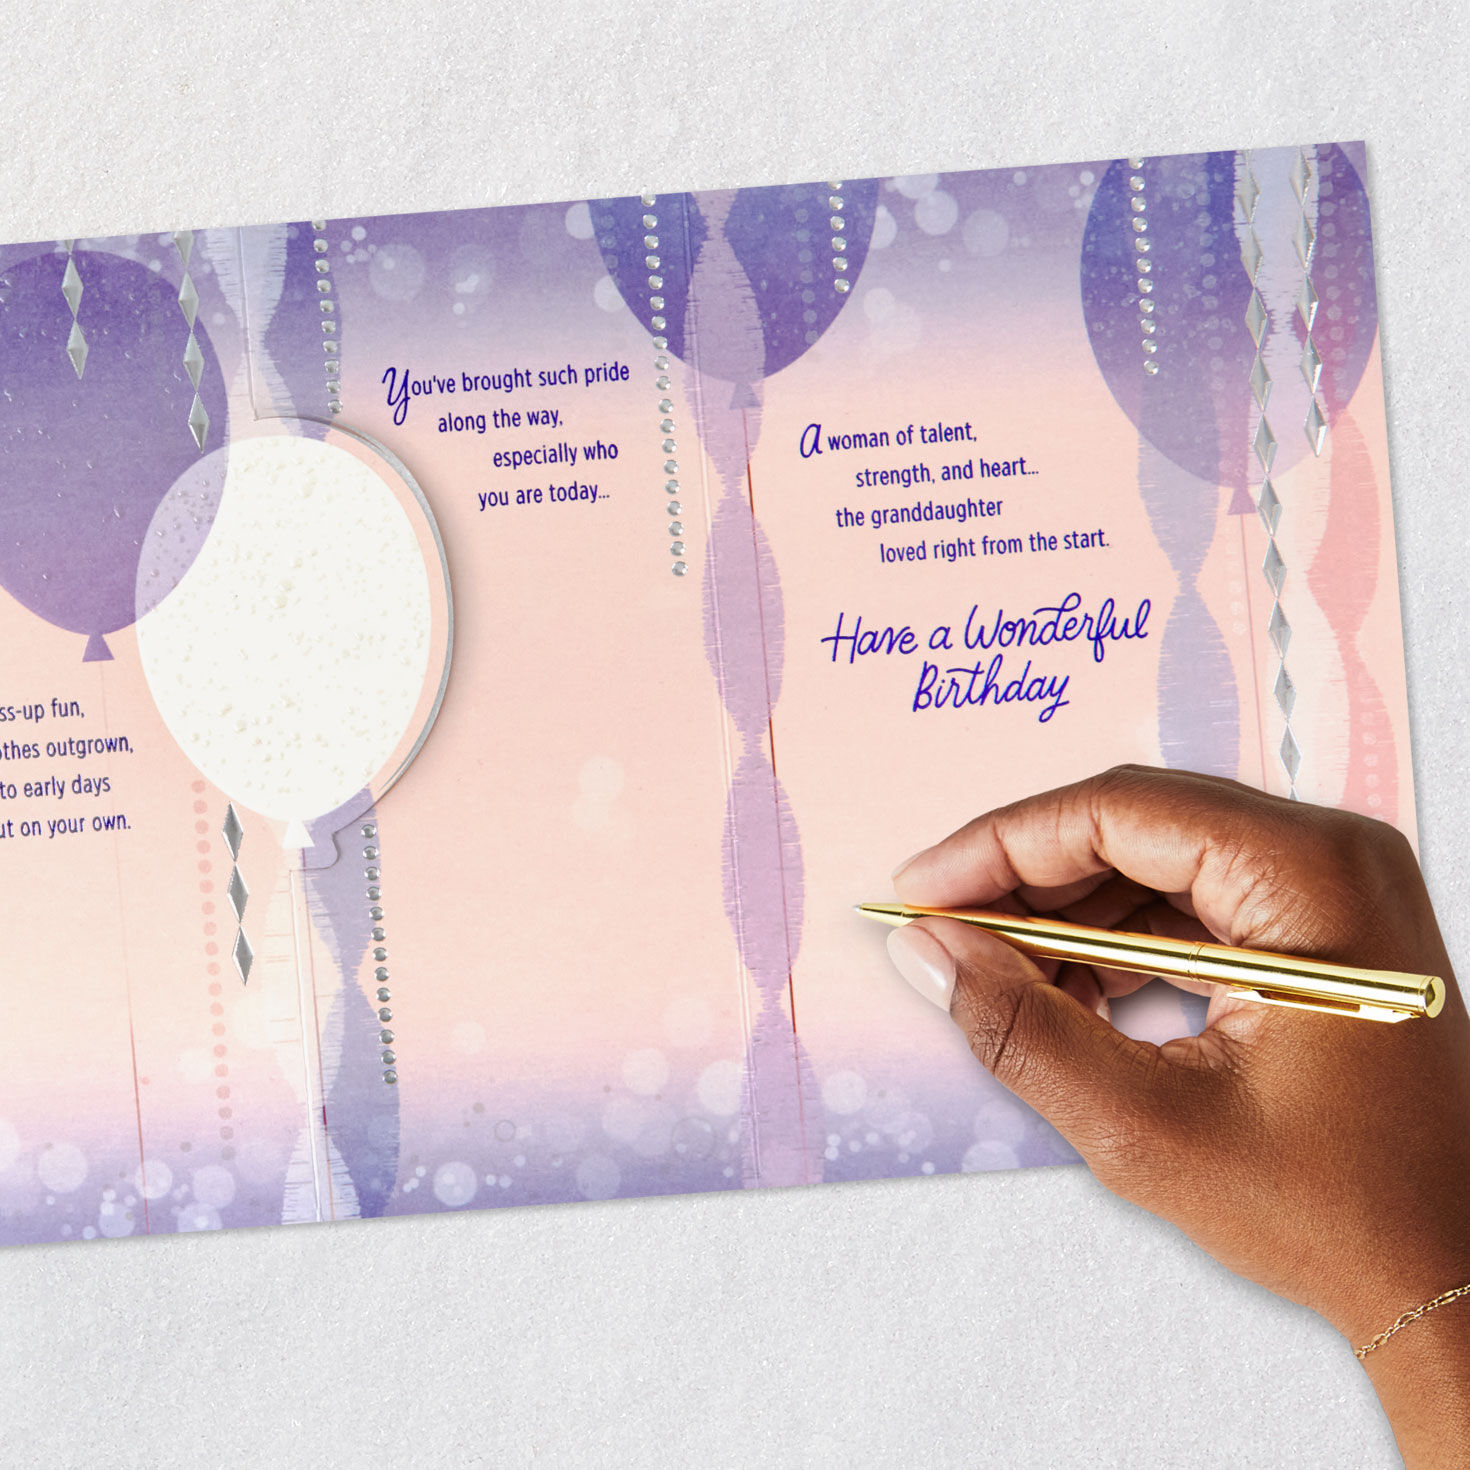 fun,
outgrown,
to early days
on your own.
You've brought such pride
along the way,
especially who
you are today...
A woman of talent,
strength, and heart...
the granddaughter
loved right from the start.
Have a Wonderful
Birthday